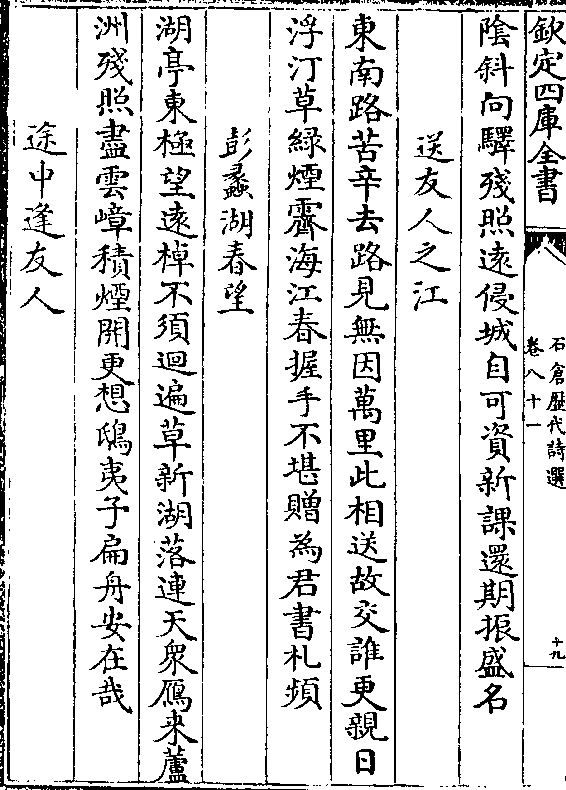 欽定四庫全書
石倉歴代詩選
卷八十一
十九
陰斜向驛殘照遠侵城自可資新課還期振盛名
送友人之江
東南路苦辛去路見無因萬里此相送故交誰更親日
浮汀草緑煙霽海江春握手不堪贈為君書札頻
彭蠡湖春望
湖亭東極望遠棹不須迴遍草新湖落連天衆鴈来蘆
洲殘照盡雲嶂積煙開更想鴟夷子扁舟安在哉
途中逢友人